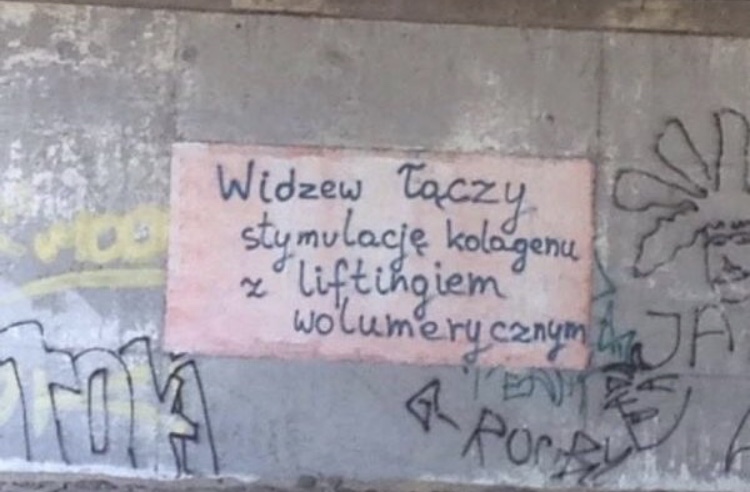 Widzew łączy
stymulację kolagenu
z liftingiem
wolumerycznym
JA
TOK